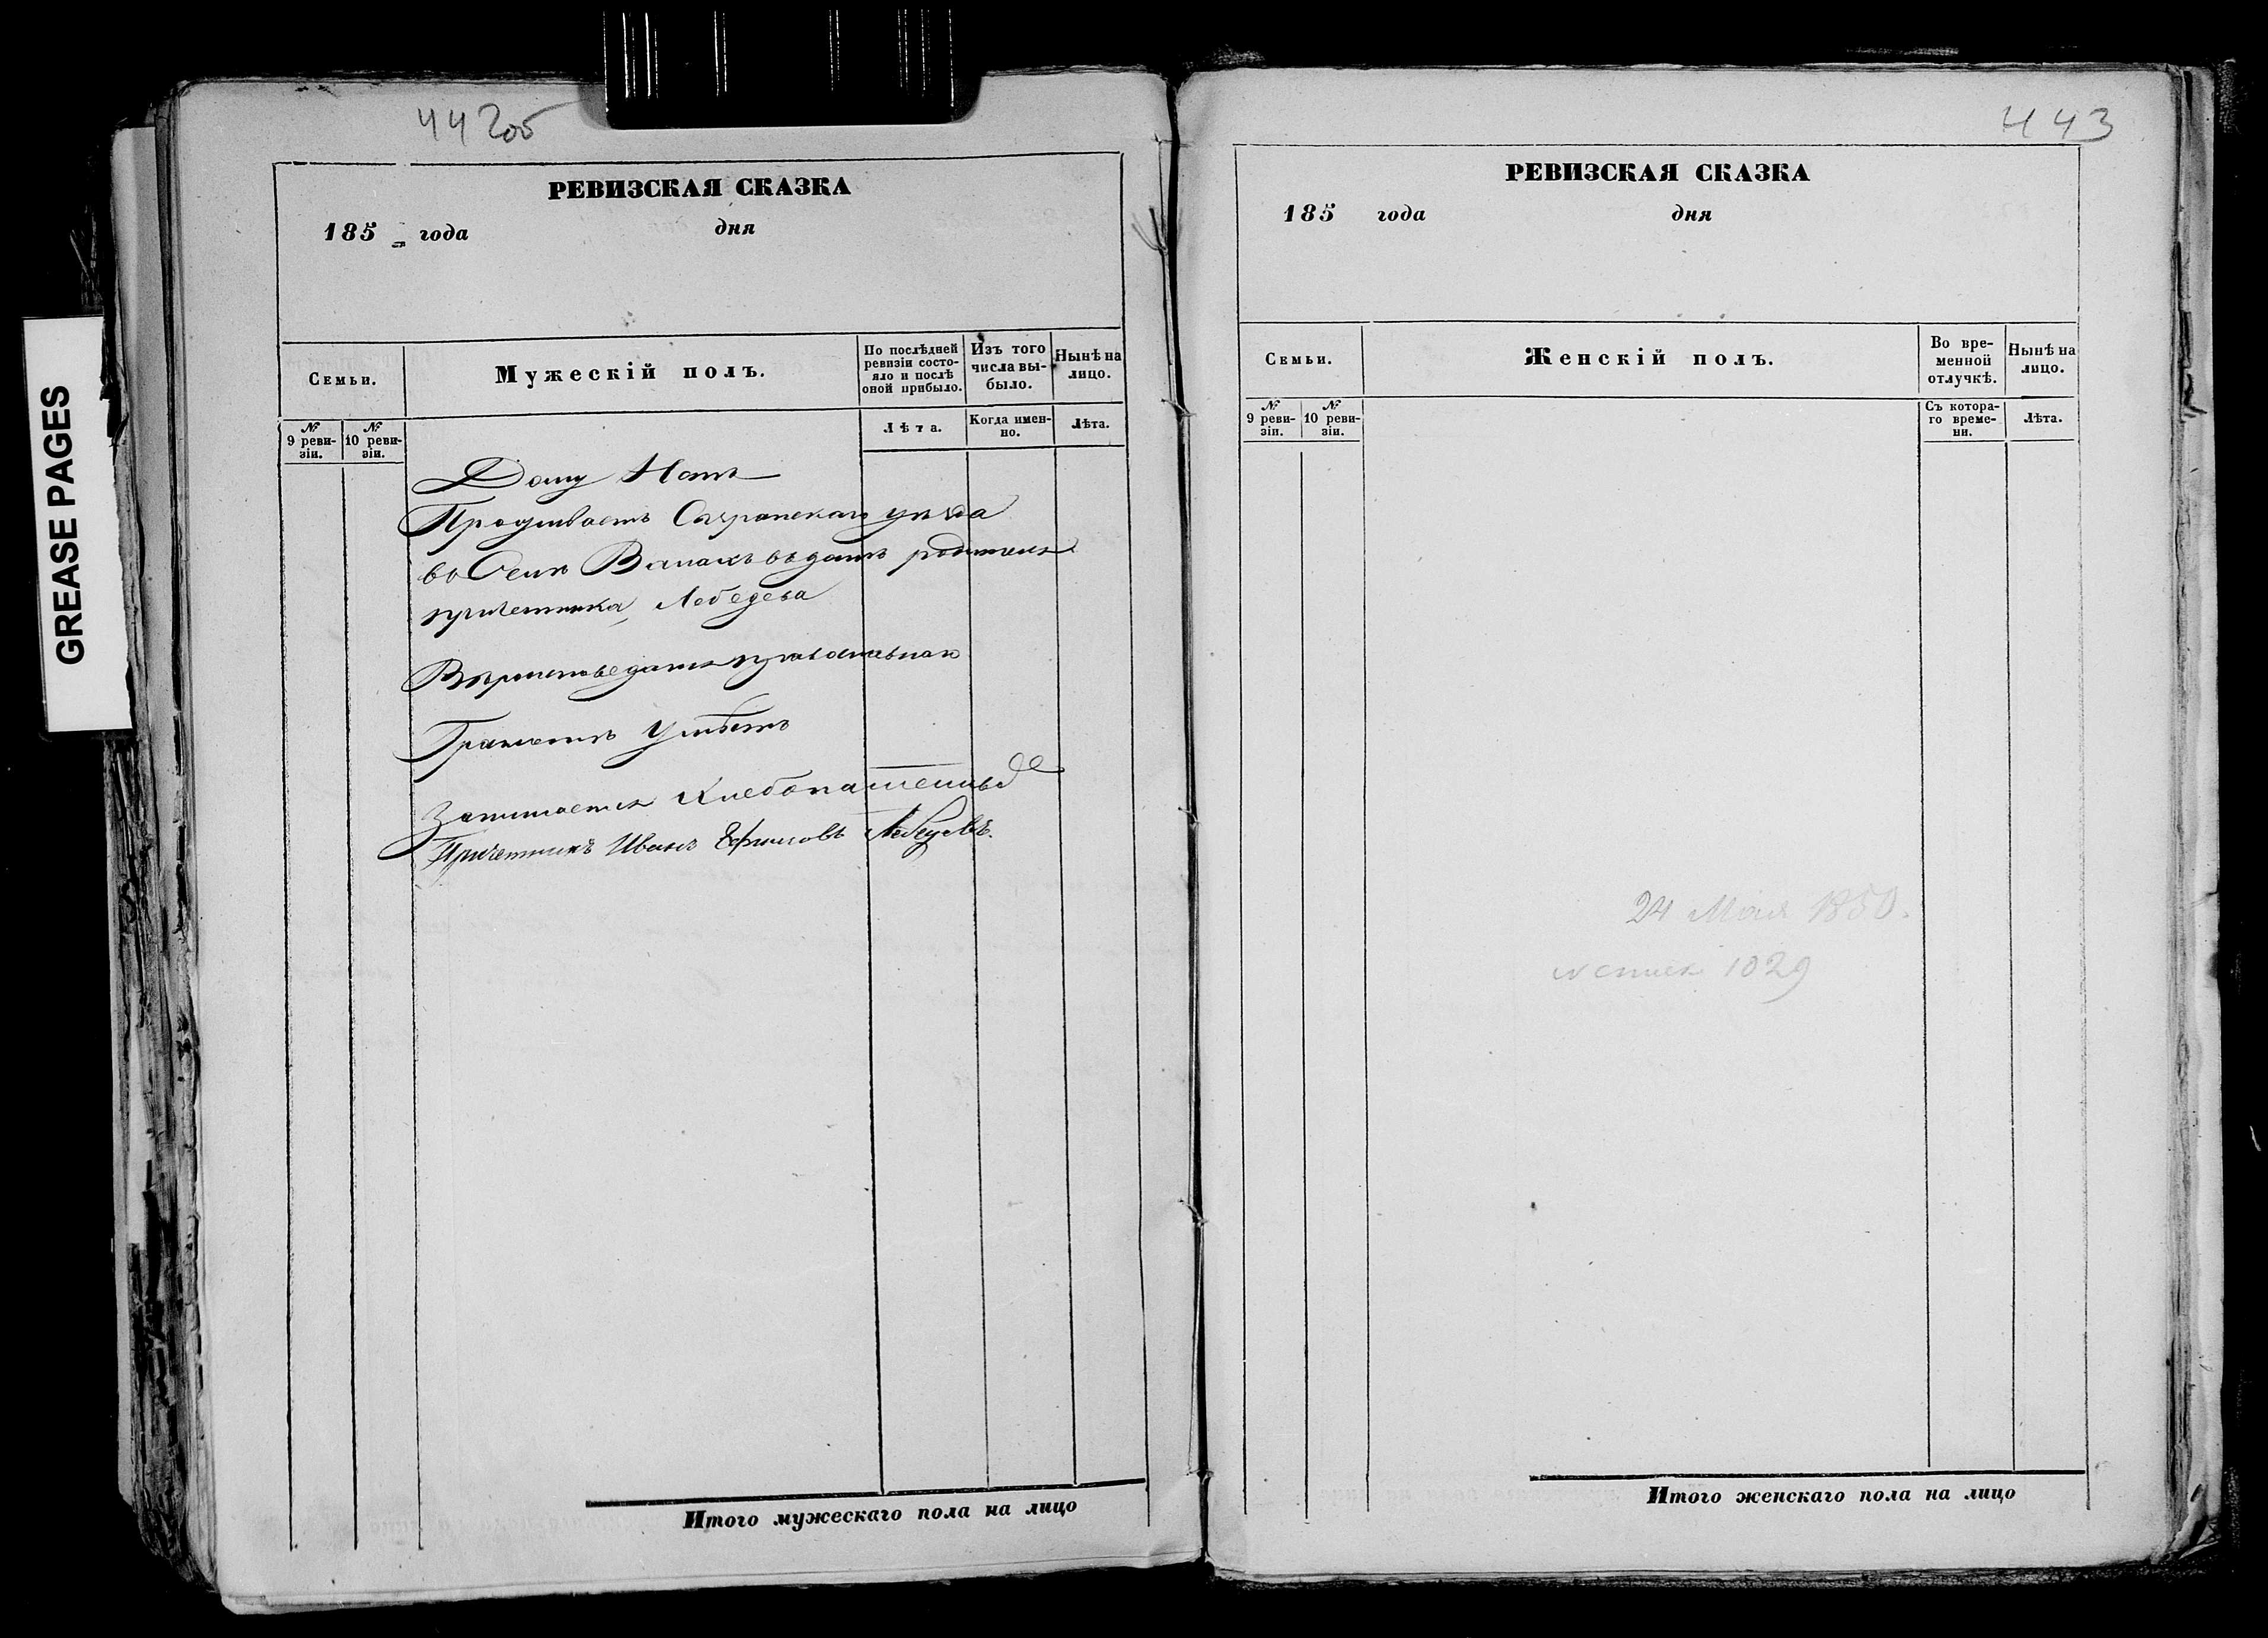 442об
РЕВИЗСКАЯ СКАЗКА
185 года дня
Семьи.
Мужескій полъ.
По послѣдней ревизіи состояло и послѣ оной прибыло.
Изъ того числа выбыло.
Нынѣ на лицо.
№ 9 ревизіи.
№ 10 ревизіи.
Лѣта.
Когда именно.
Лѣта.
Дому Нѣтъ
Проживаетъ уѣзда
въ Селѣ въ домѣ родителя
причетника Лебедева
Вѣроисповеданія православнаго
Грамотѣ Умѣетъ
Занимается Хлебопашеством
Причетникъ Иванъ Ефимовъ Лебедевъ.
Итого мужескаго пола на лицо
443
РЕВИЗСКАЯ СКАЗКА
185 года дня
Семьи.
Женскій полъ.
Во временной отлучкѣ.
Нынѣ на лицо.
№ 9 ревизіи.
№ 10 ревизіи.
Съ котораго времени.
Лѣта.
24 Мая 1850.
1029
Итого женскаго пола на лицо
GREASE PAGES